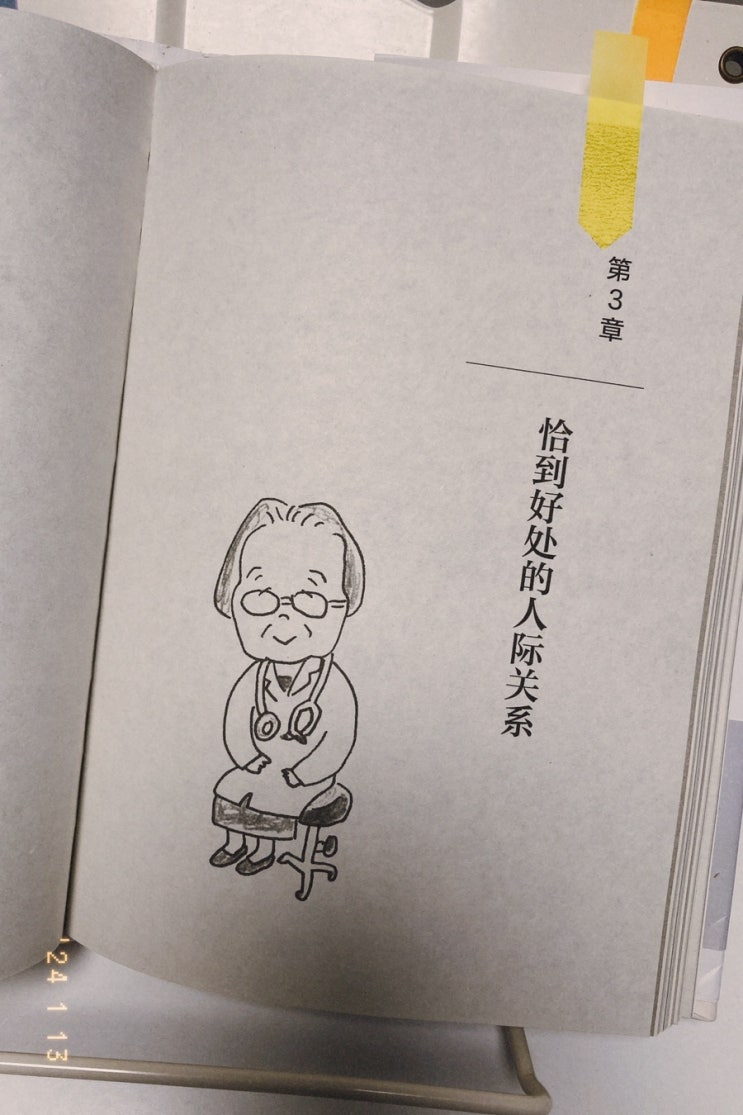 第3章
恰到好处的人际关系
'24 1 13